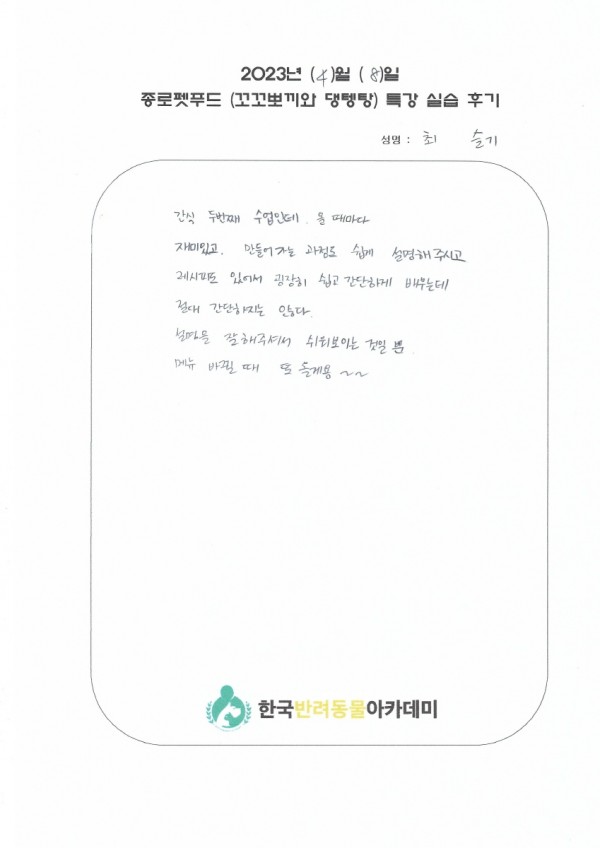 2023년 (4)월 (8)일
종로펫푸드 (꼬꼬뽀끼와 댕텡탕) 특강 실습 후기
성명 : 최 슬기
간식 두번째 수업인데. 올 때마다
재미있고. 만들어가는 과정도 쉽게 설명해 주시고
레시피도 있어서 굉장히 쉽고 간단하게 배우는데
절대 간단하지는 않다.
설명을 잘해주셔서 쉬워보이는 것일 뿐
메뉴 바뀔 때 또 들게용 ~~
한국반려동물아카데미